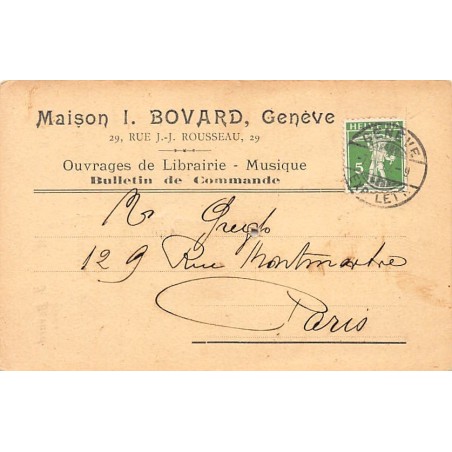 Maison I. BOVARD, Genève
29, RUE J.-J. ROUSSEAU, 29
Ouvrages de Librairie - Musique
Bulletin de Commande
HELVETIA
5
GENÈVE
LETT
Mr
129 Rue Montmartre
Paris